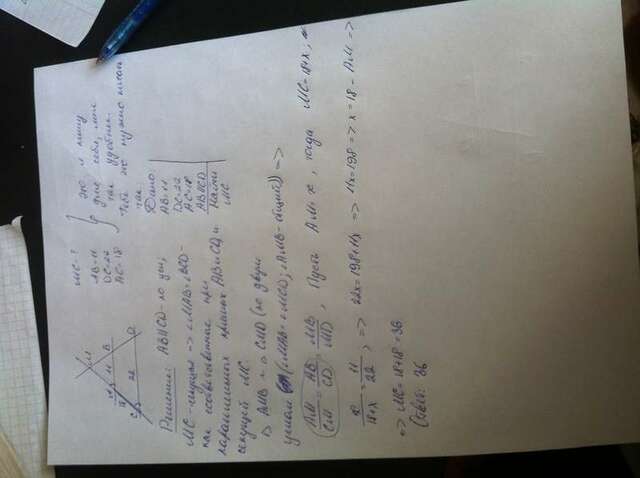 MC-?
AB=11
DC=22
AC=18
это я пишу
для себя, мне
так удобнее.
Тебе не нужно писать
так
Дано:
AB=11
DC=22
AC=18
AB||CD
Найти
MC
M
A 11 B
18
C 22 D
Решение: AB||CD - по усл;
MC-секущая => ∠MAB=∠MCD-
как соответственные при
параллельных прямых AB и CD и
секущей MC.
Δ AMB ~ Δ CMD (по двум
углам (∠MAB=∠MCD; ∠AMB-общий)) =>
AM/CM = AB/CD = MB/MD, Пусть AM=x, тогда MC=18+x,
x/18+x = 11/22, => 22x=198+11x => 11x=198 => x=18-AM =>
=> MC=18+18=36
Ответ: 36